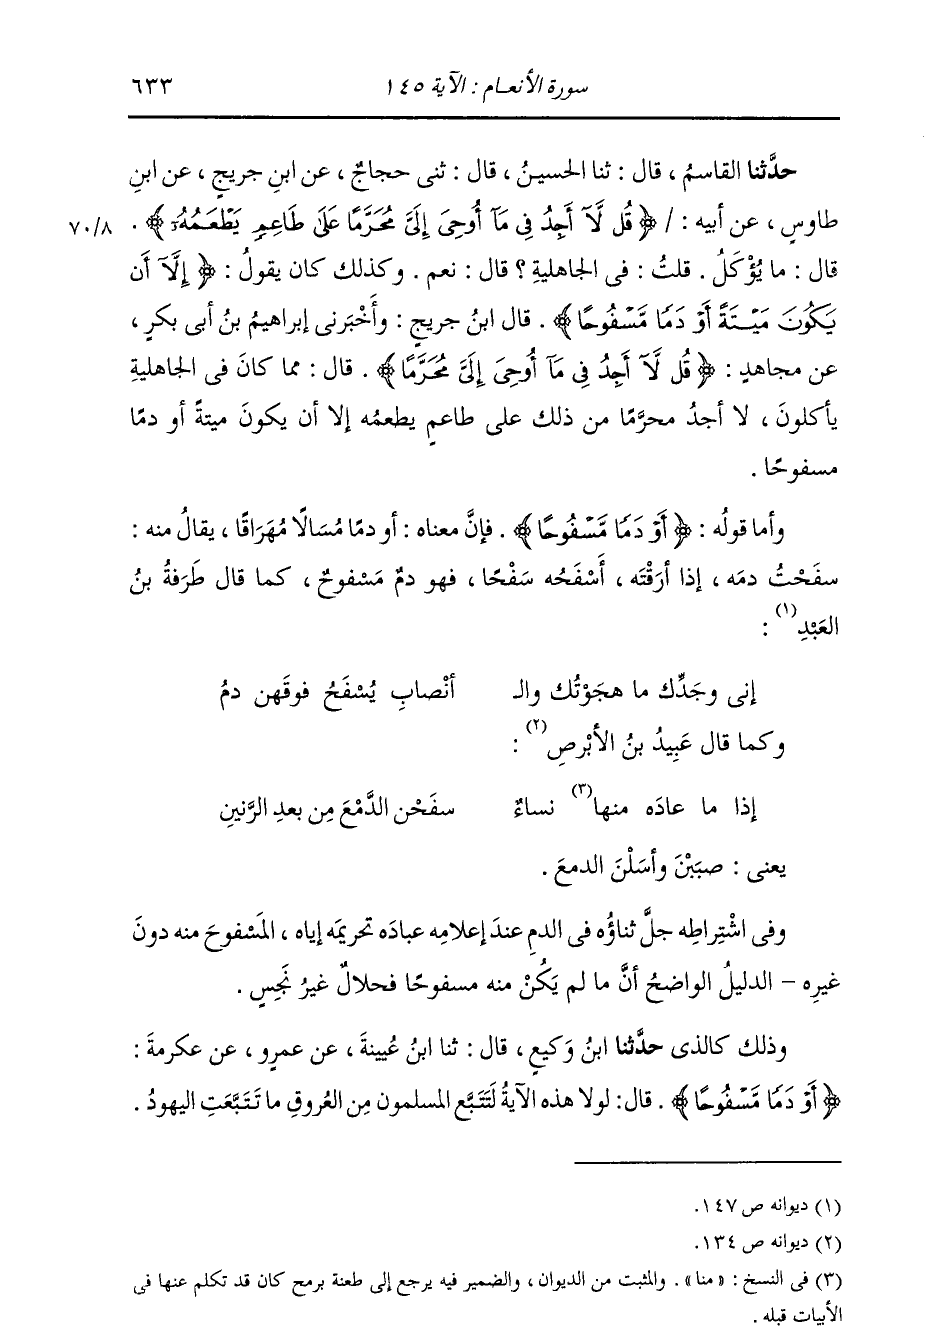 سورة الأنعام : الآية ١٤٥ ٦٣٣
حدَّثنا القاسمُ ، قال : ثنا الحسينُ ، قال : ثنى حجاجٌ ، عن ابنِ جريجٍ ، عن ابنِ
طاوسٍ ، عن أبيه : / ﴿ قُل لَّآ أَجِدُ فِى مَآ أُوحِىَ إِلَىَّ مُحَرَّمًا عَلَىٰ طَاعِمٍ يَطْعَمُهُۥٓ ﴾ . ٧٠/٨
قال : ما يُؤْكَلُ . قلتُ : فى الجاهليةِ ؟ قال : نعم . وكذلك كان يقولُ : ﴿ إِلَّآ أَن
يَكُونَ مَيْتَةً أَوْ دَمًا مَّسْفُوحًا ﴾ . قال ابنُ جريجٍ : وأَخْبَرنى إبراهيمُ بنُ أبى بكرٍ ،
عن مجاهدٍ : ﴿ قُل لَّآ أَجِدُ فِى مَآ أُوحِىَ إِلَىَّ مُحَرَّمًا ﴾ . قال : مما كانَ فى الجاهليةِ
يأكلونَ ، لا أجدُ محرَّمًا من ذلك على طاعمٍ يطعمُه إلا أن يكونَ ميتةً أو دمًا
مسفوحًا .
وأما قولُه : ﴿ أَوْ دَمًا مَّسْفُوحًا ﴾ . فإنَّ معناه : أو دمًا مُسَالًا مُهَرَاقًا ، يقالُ منه :
سفَحْتُ دمَه ، إذا أرَقْتَه ، أَسْفَحُه سَفْحًا ، فهو دمٌ مَسْفوحٌ ، كما قال طَرَفةُ بنُ
العَبْدِ(١) :
إنى وجَدِّك ما هجَوْتُك والـ أنْصابِ يُسْفَحُ فوقَهن دمُ
وكما قال عَبِيدُ بنُ الأبْرصِ(٢) :
إذا ما عادَه منها(٣) نساءٌ سفَحْن الدَّمْعَ مِن بعدِ الرَّنينِ
يعنى : صبَبْنَ وأسَلْنَ الدمعَ .
وفى اشْتِراطِه جلَّ ثناؤُه فى الدمِ عندَ إعلامِه عبادَه تحريمَه إياه ، المَسْفوحَ منه دونَ
غيرِه – الدليلُ الواضحُ أنَّ ما لم يَكُنْ منه مسفوحًا فحلالٌ غيرُ نَجِسٍ .
وذلك كالذى حدَّثنا ابنُ وَكيعٍ ، قال : ثنا ابنُ عُيينةَ ، عن عمرٍو ، عن عكرمةَ :
﴿ أَوْ دَمًا مَّسْفُوحًا ﴾ . قال : لولا هذه الآيةُ لَتَتَبَّع المسلمون مِن العُروقِ ما تَتَبَّعَتِ اليهودُ .
(١) ديوانه ص ١٤٧.
(٢) ديوانه ص ١٣٤.
(٣) فى النسخ : « منا » . والمثبت من الديوان ، والضمير فيه يرجع إلى طعنة برمح كان قد تكلم عنها فى
الأبيات قبله .